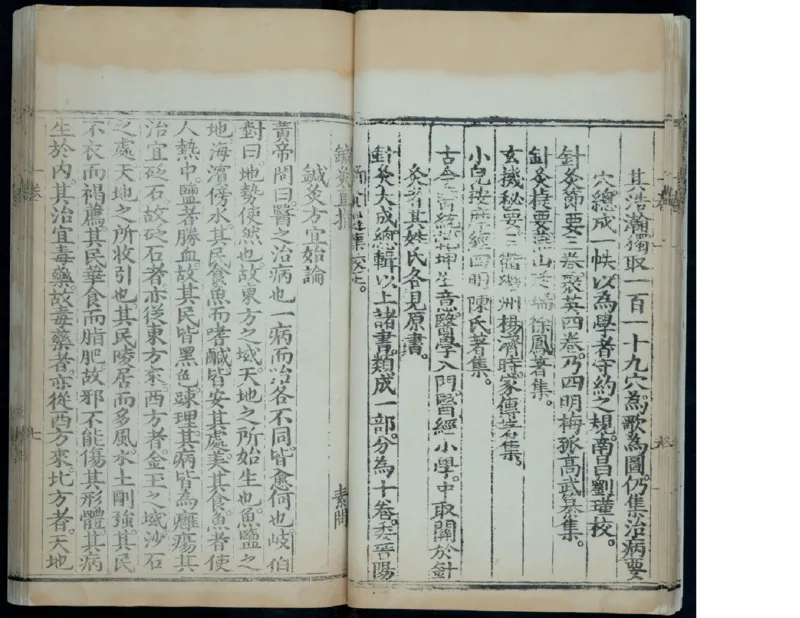 其浩瀚獨取一百一十九穴為歌為圖仍集治病要
穴總成一帙以為學者守約之規南昌劉瑾校。
針灸節要三卷聚英四卷乃四明梅孤高武纂集。
針灸捷要燕山徐鳳著集。
玄機秘要三衢楊濟時家傳著集。
小兒按摩經四明陳氏著集。
古今醫統乾坤生意醫學入門醫經小學中取關於針
灸者其姓氏各見原書。
針灸大成總輯以上諸書類成一部分為十卷委晉陽
鍼灸直指
鍼灸方宜始論 素問
黃帝問曰醫之治病也一病而治各不同皆愈何也岐伯
對曰地勢使然也故東方之域天地之所始生也魚鹽之
地海濱傍水其民食魚而嗜鹹皆安其處美其食魚者使
人熱中鹽者勝血故其民皆黑色疎理其病皆為癰瘍其
治宜砭石故砭石者亦從東方來西方者金玉之域沙石
之處天地之所收引也其民陵居而多風水土剛強其民
不衣而褐薦其民華食而脂肥故邪不能傷其形體其病
生於內其治宜毒藥故毒藥者亦從西方來北方者天地